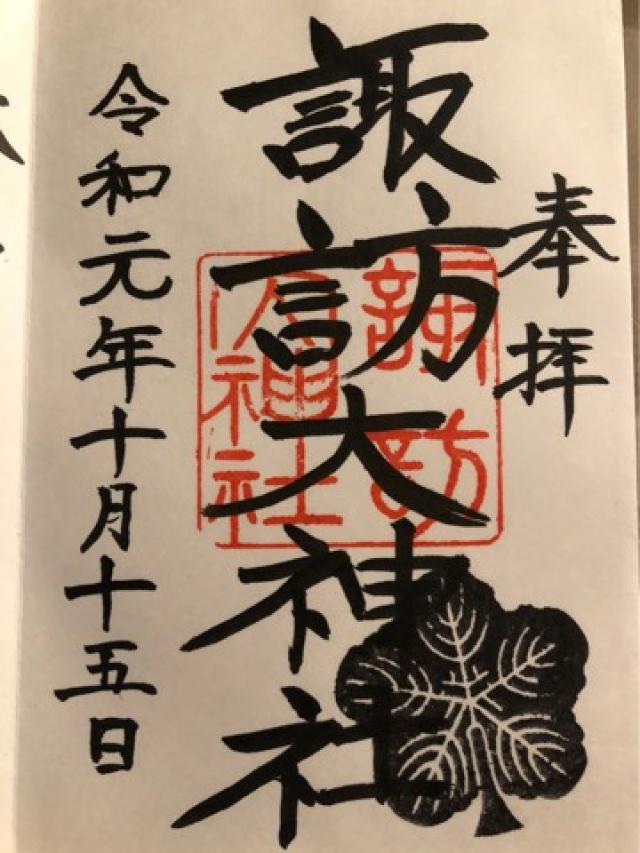 奉拝
諏訪大神社
諏訪
大神社
令和元年十月十五日